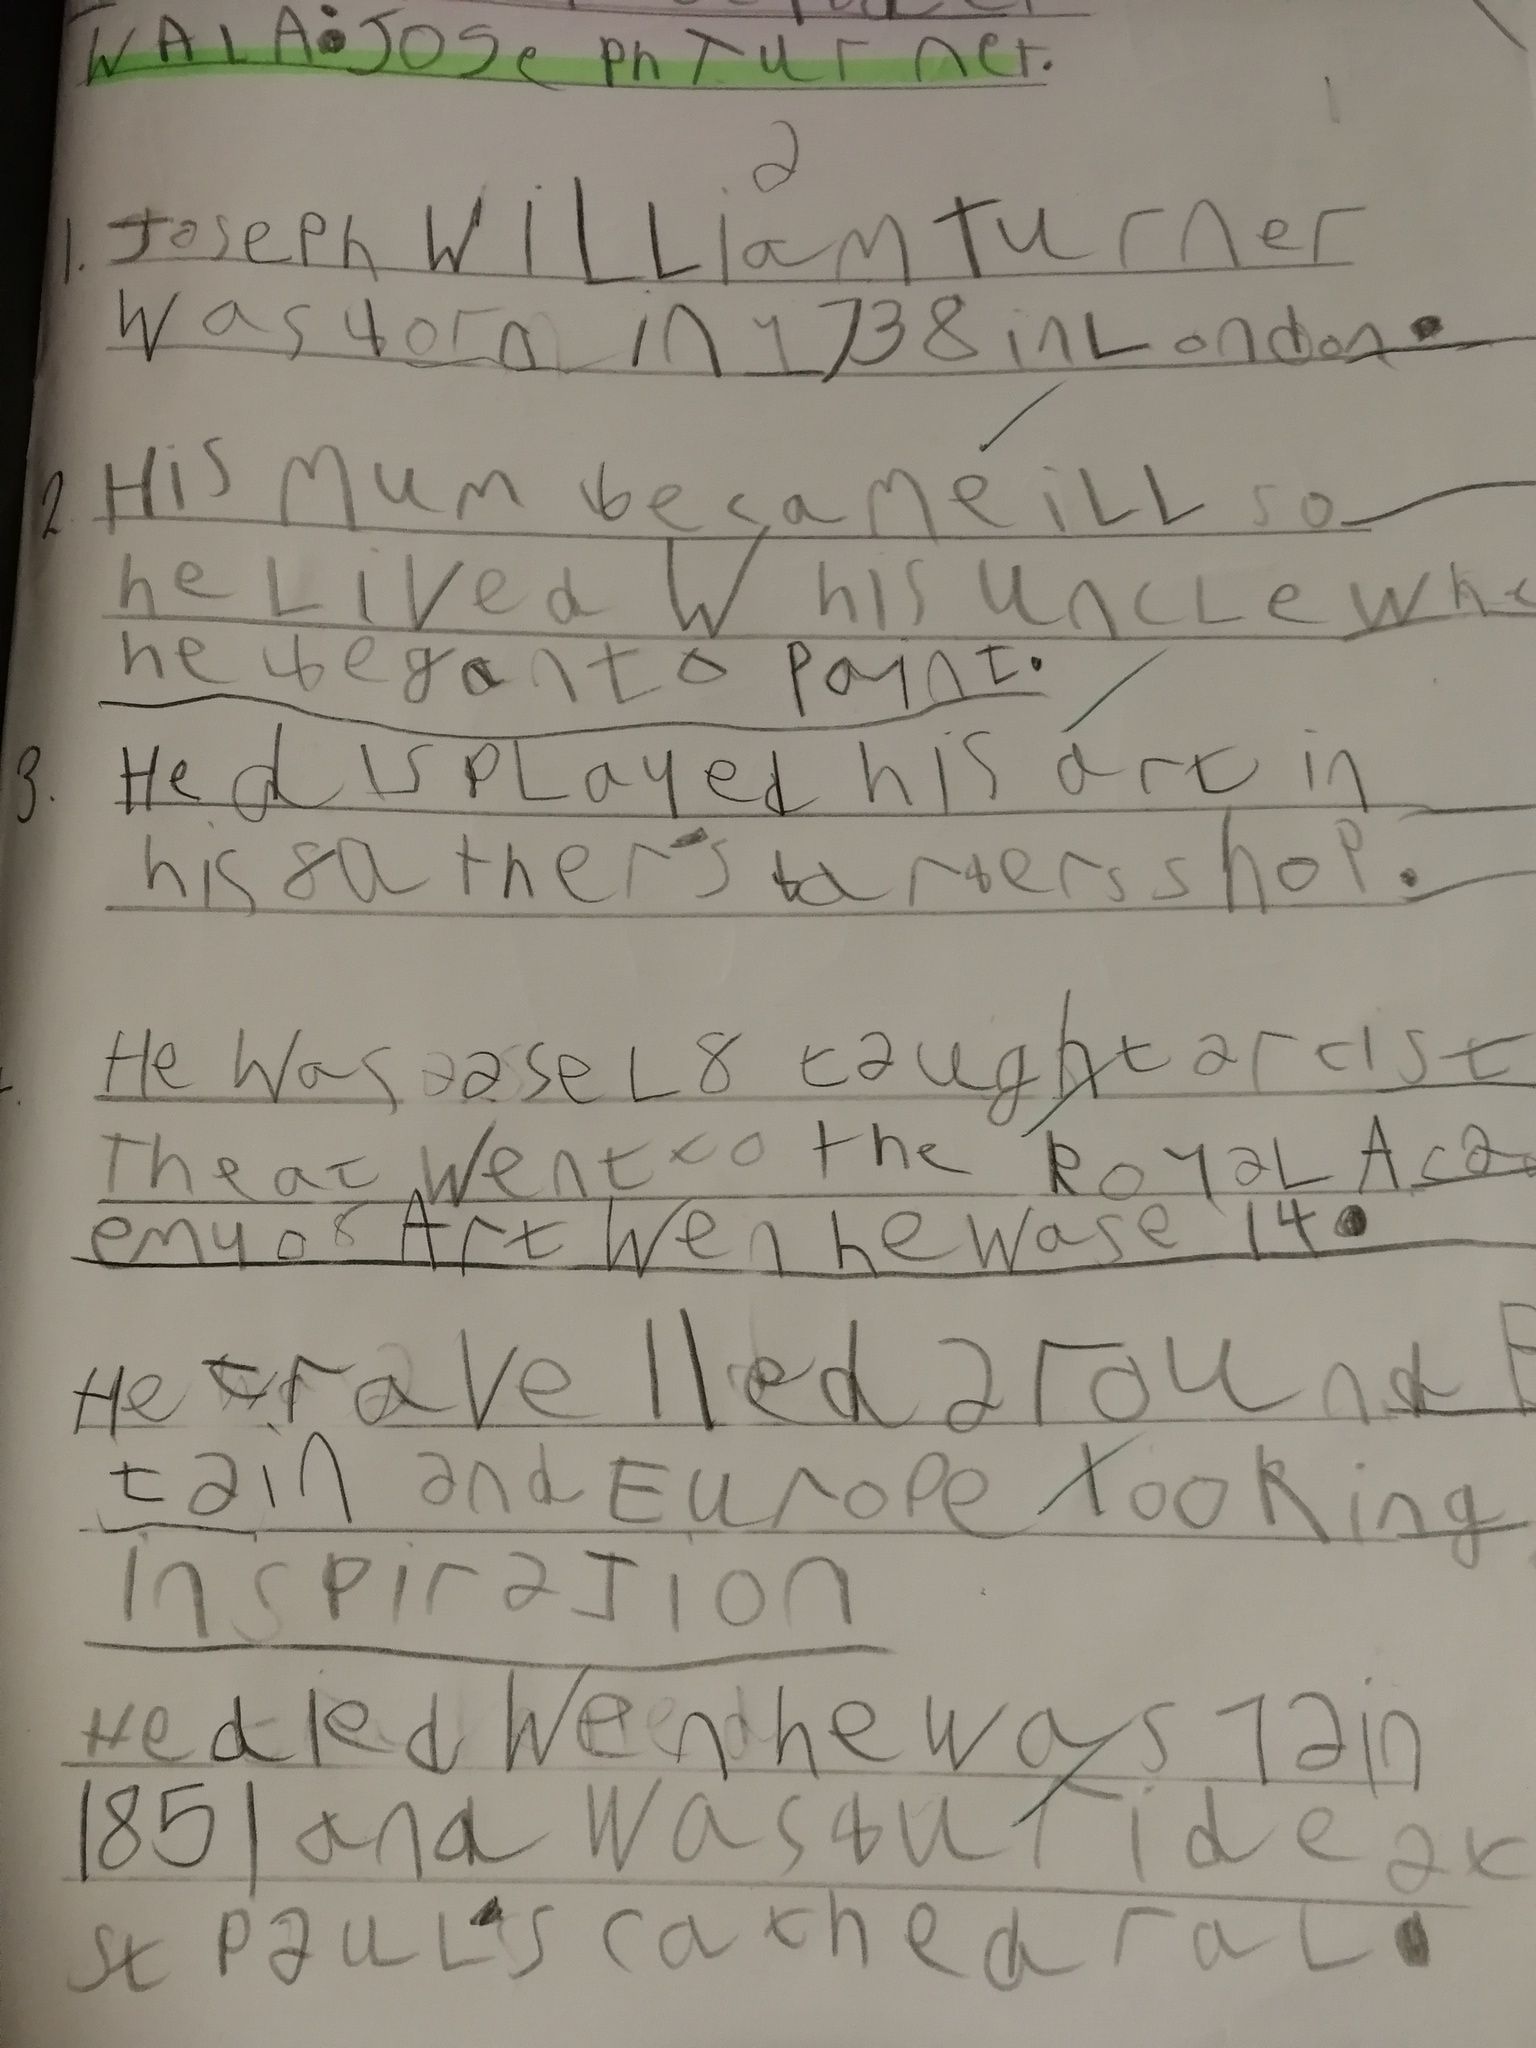 WALA: Joseph Turner.
2
1. Joseph WiLLiam Turner
Was born in 1738 in London.
2. His Mum became iLL so
he Lived W his UncLe
he began to Paynt.
3. He disPLayed his art in
his father's barbers shoP.
He Was a seLf taught artist
Theat Went to the RoyaL Aca
emy of Art Wen he Wase 14.
He travelled around
tain and EuroPe looking
inspiration
He died Wen he was 7ain
1851 and Was buride at
st PauL's cathedraL.